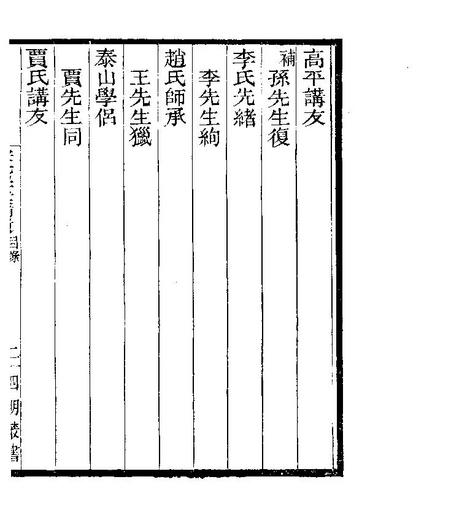 高平講友
補孫先生復
李氏先緒
李先生絢
趙氏師承
王先生獵
泰山學侶
賈先生同
賈氏講友
目錄
四明叢書